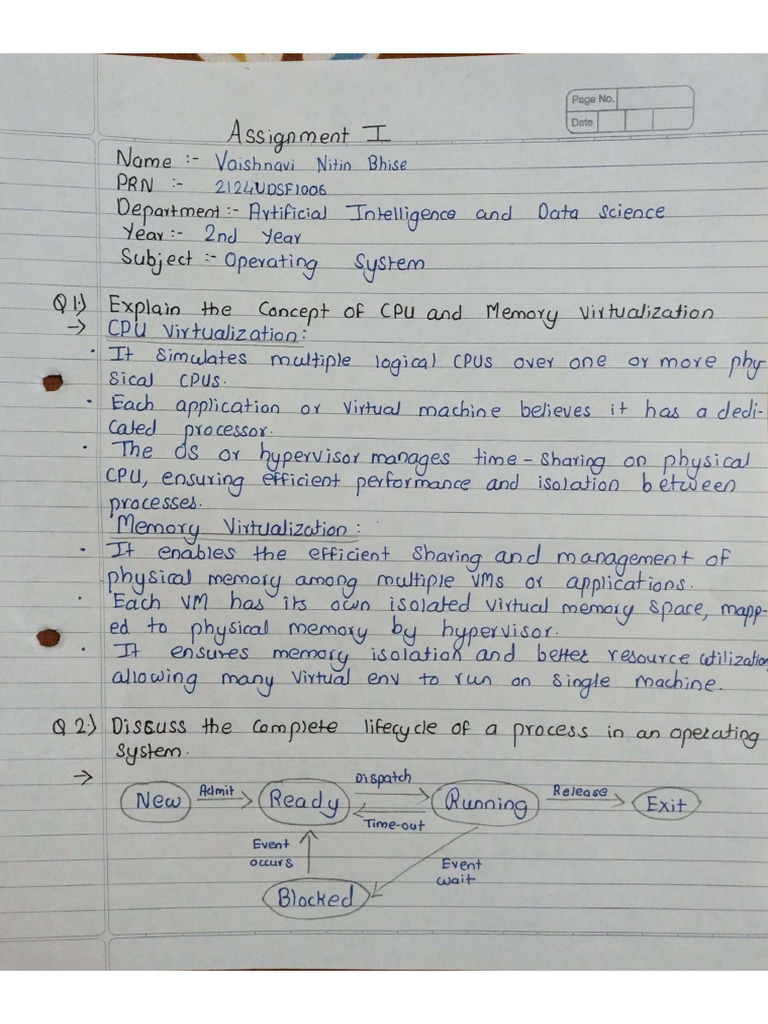 Page No.
Date
Assignment I
Name :- Vaishnavi Nitin Bhise
PRN :- 2124UDSF1006
Department:- Artificial Intelligence and Data Science
Year:- 2nd Year
Subject :- Operating System
Q 1:) Explain the Concept of CPU and Memory Virtualization
→ CPU Virtualization:
• It simulates multiple logical CPUs over one or more phy
sical CPUs.
• Each application or virtual machine believes it has a dedi-
cated processor.
• The OS or hypervisor manages time-sharing on physical
CPU, ensuring efficient performance and isolation between
processes.
Memory Virtualization:
• It enables the efficient sharing and management of
physical memory among multiple VMs or applications.
• Each VM has its own isolated virtual memory space, mapp-
ed to physical memory by hypervisor.
• It ensures memory isolation and better resource utilization,
allowing many virtual env to run on single machine.
Q 2:) Discuss the complete lifecycle of a process in an operating
system.
→
New Admit Ready Dispatch Running Release Exit
Time-out
Event
occurs
Event
wait
Blocked